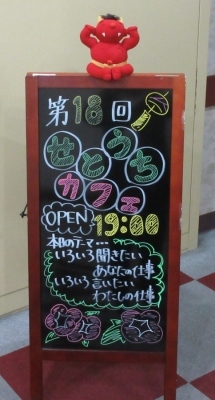 第18回
せとうち
カフェ
OPEN 19:00
本日のテーマ…
いろいろ聞きたい
あなたの仕事
いろいろ言いたい
わたしの仕事